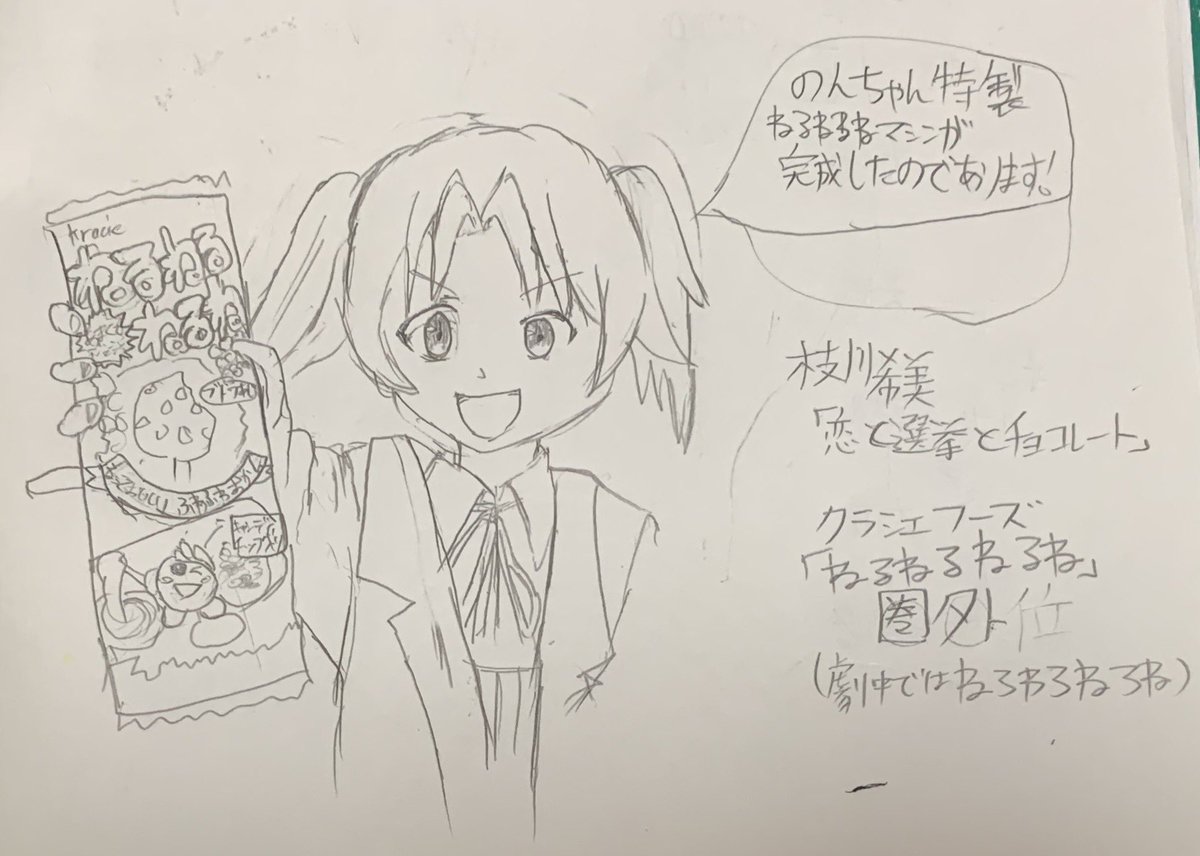 Kracie
ねるねる
ねるね
ブドウ味
ふわふわ
キャンデー
チップ入り
のんちゃん特製
ねるねるねマシンが
完成したのであります!
枝川希美
「恋と選挙とチョコレート」
クラシエフーズ
「ねるねるねるね」
圏外位
(劇中ではねろねろねろね)